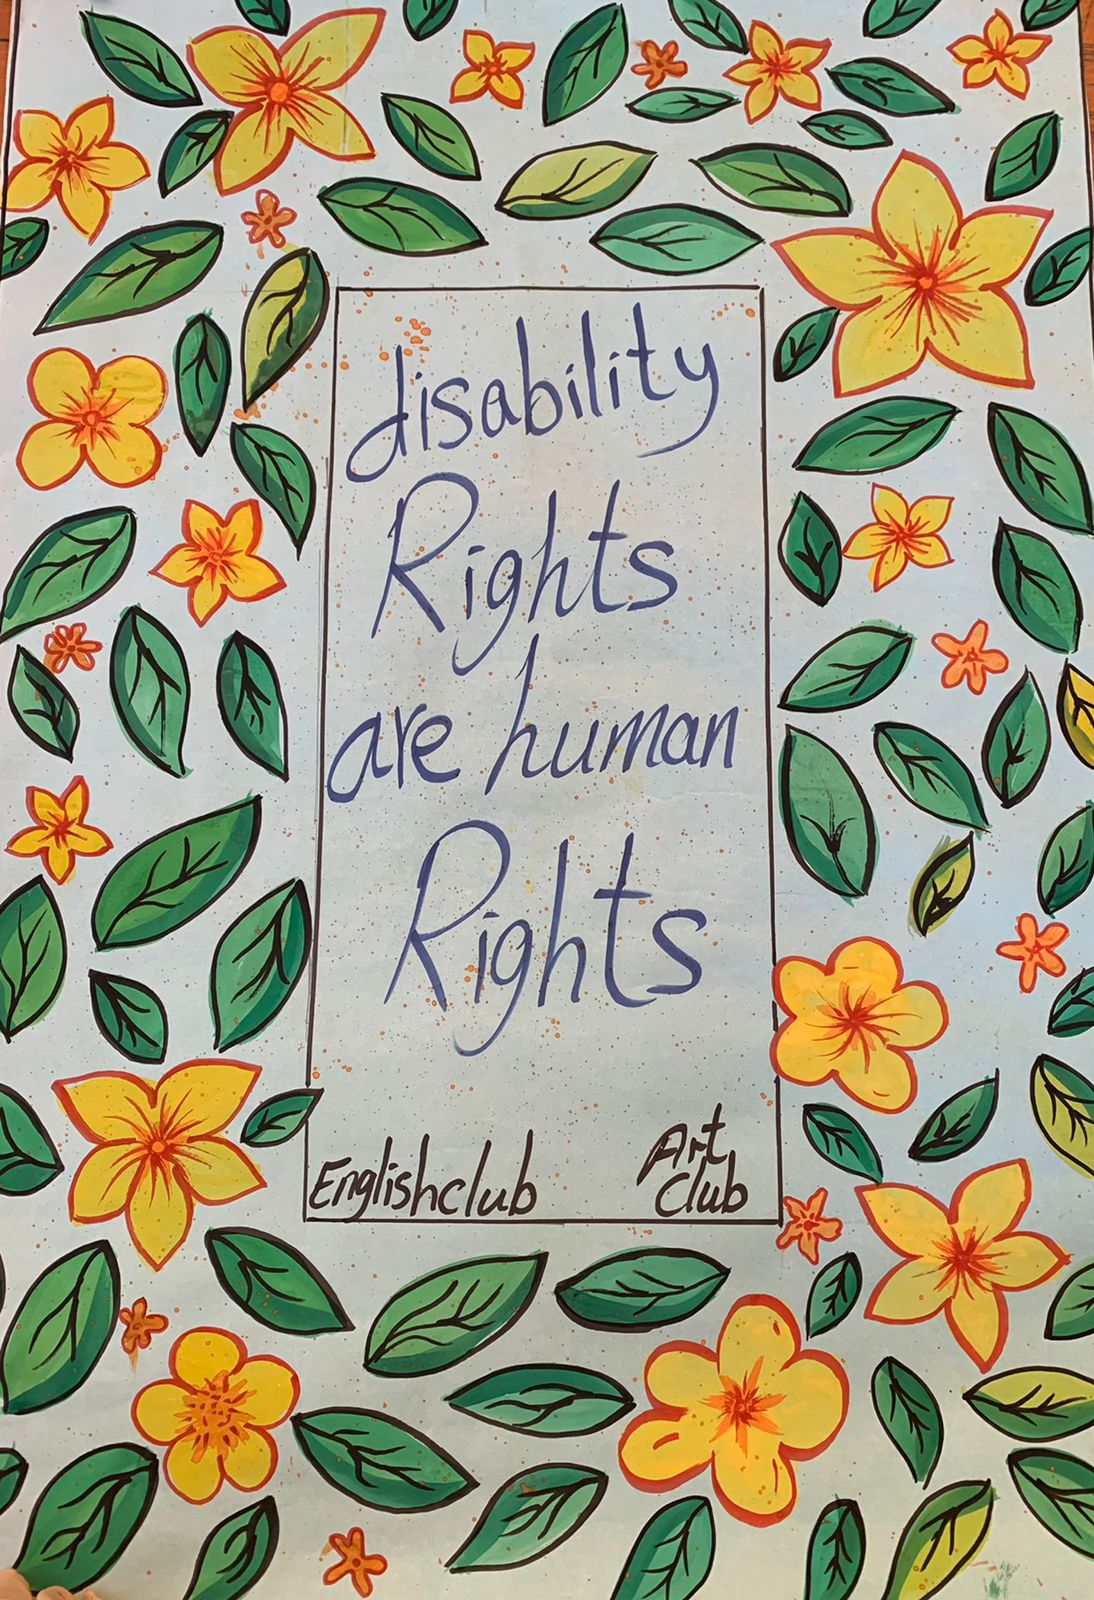 disability
Rights
are human
Rights
Englishclub
Art
Club